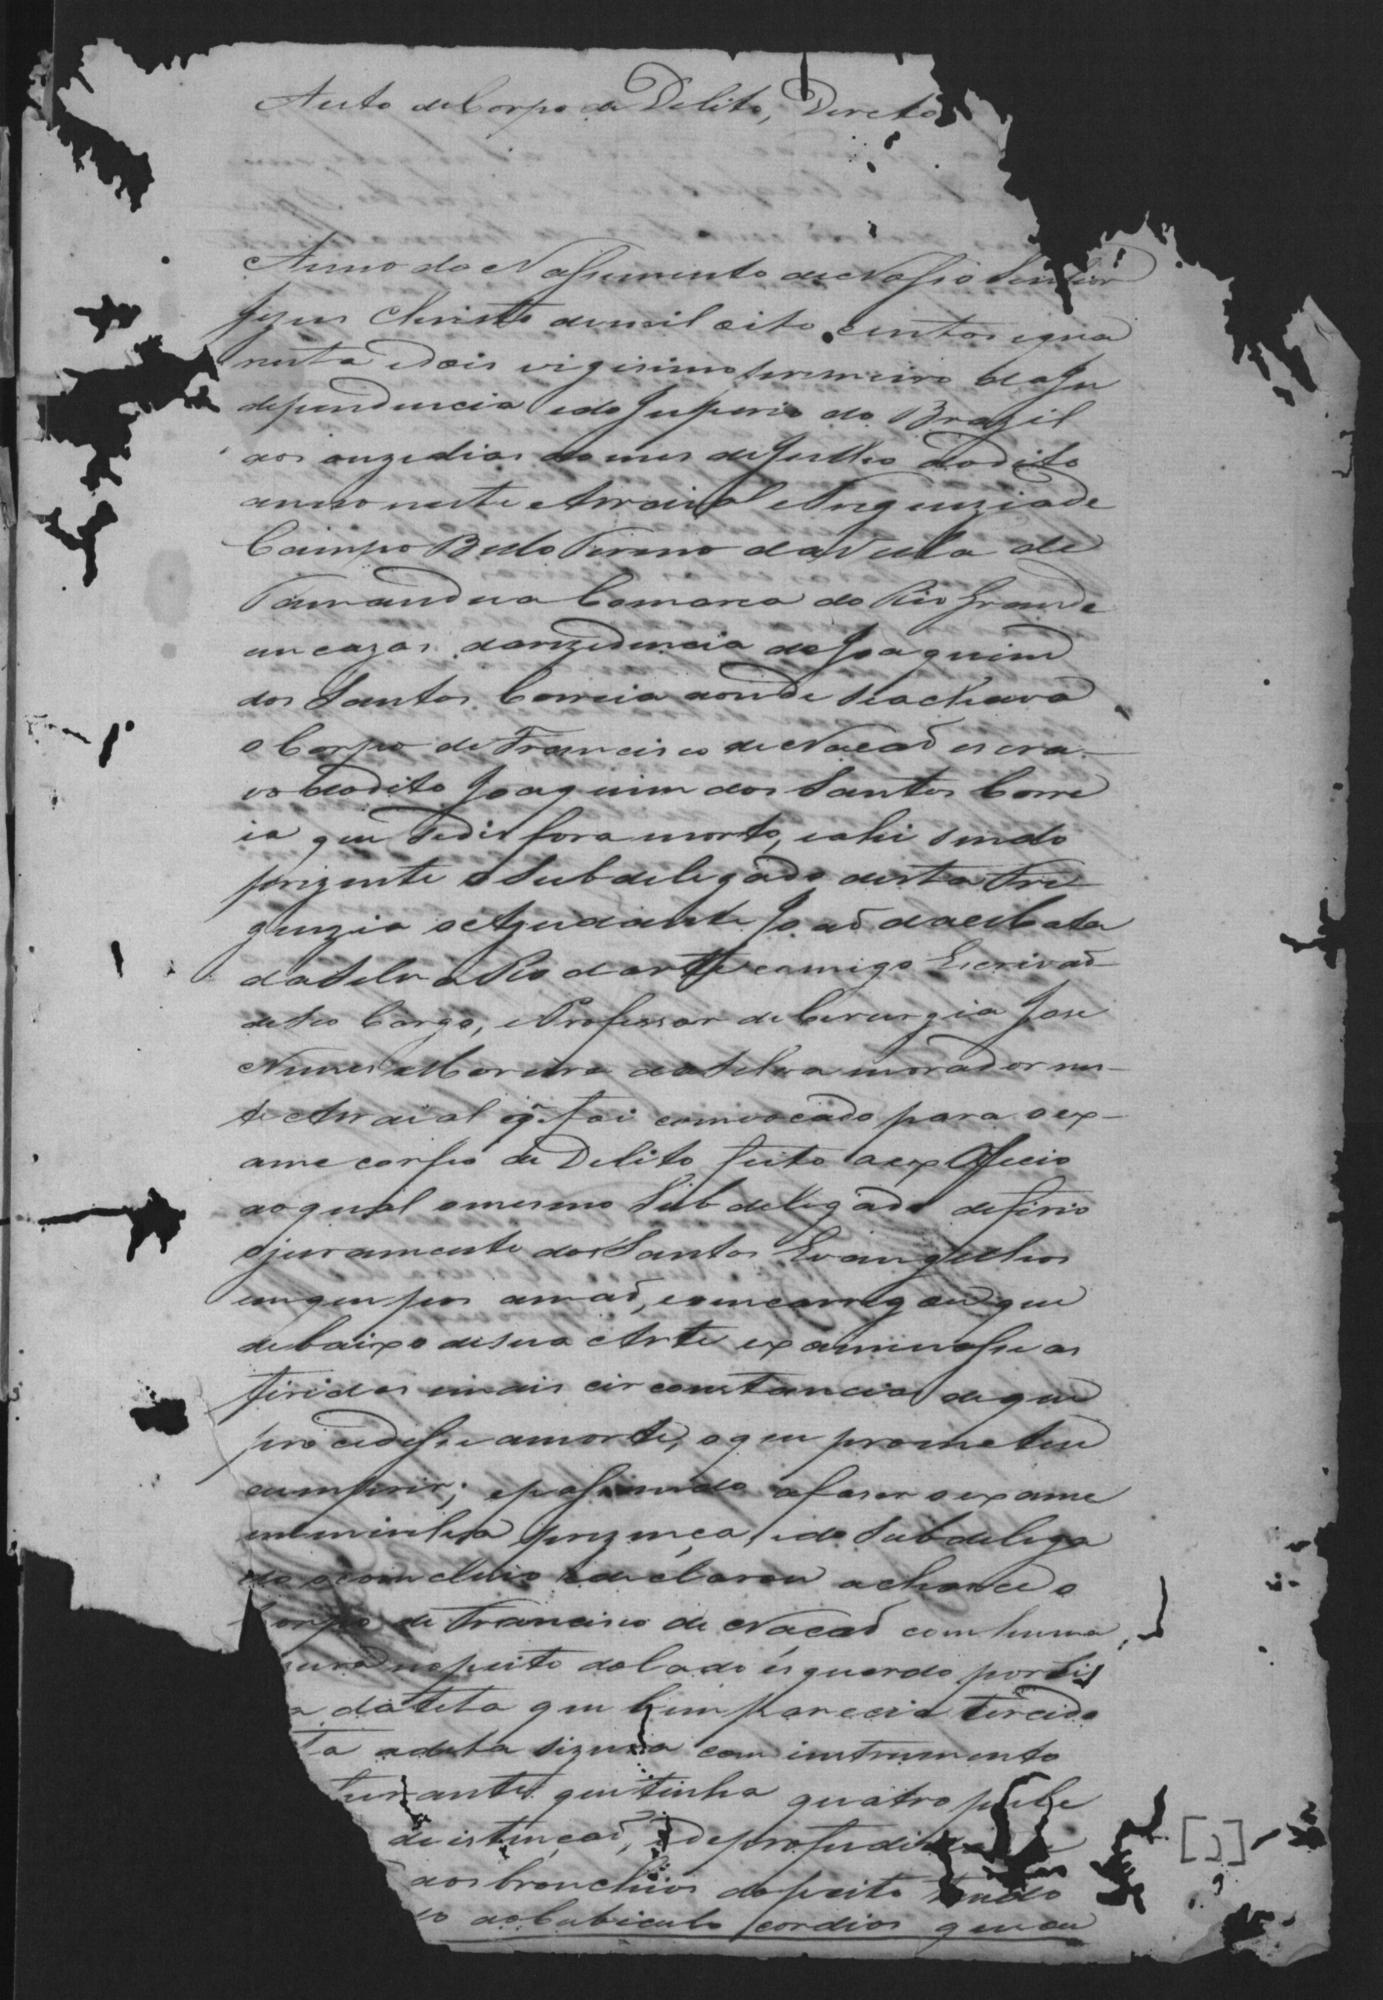 Auto de Corpo de Delito, Dereto
Anno do Nassimento de Nosso Senhor
Jezus Christo de mil oito centos e qua
renta e dois vigesimo primeiro da In
dependencia e do Imperio do Brazil
aos onze dias do mes de Julho do dito
anno neste Arraial e Freguezia de
Campo Bello Termo da Villa de
Tamandua Comarca do Rio Grande
em cazas da rezidencia de Joaquim
dos Santos Correia aonde se achava
o Corpo de Francisco de Nacaõ escra-
vo do dito Joaquim dos Santos Corre
ia que se dis fora morto, e ahi sendo
prezente o Subdelegado desta Fre
guezia o Ajudante Joaõ da Mata
da Silva comigo Escrivaõ
de seo Cargo, e Professor de Cerurgia Jose
Nunes Moreira da Silva morador nes-
te Arraial q̃ foi comvocado para o ex-
ame corpo de Delito feito a ex Oficio
ao qual o mesmo Subdelegado deferio
o juramento dos Santos Evangelhos
em que pos a maõ, e emcarregou que
debaixo de sua Arte examinasse as
feridas e mais circonstancias de que
procedesse a morte, o que prometeu
cumprir; e passando a faser o exame
em minha prezença, e do Subdelega
do o comcluio e declarou achar ce o
Corpo de Francisco de Nacaõ com huma
no peito do lado esquerdo por sis
da teta que bem parecia ter cido
ta a dita com instrumento
furante que tinha quatro pole
de istençaõ, e de profundida
aos bronchios do peito tendo
do ao Cubiculo cordios que eu
[1]